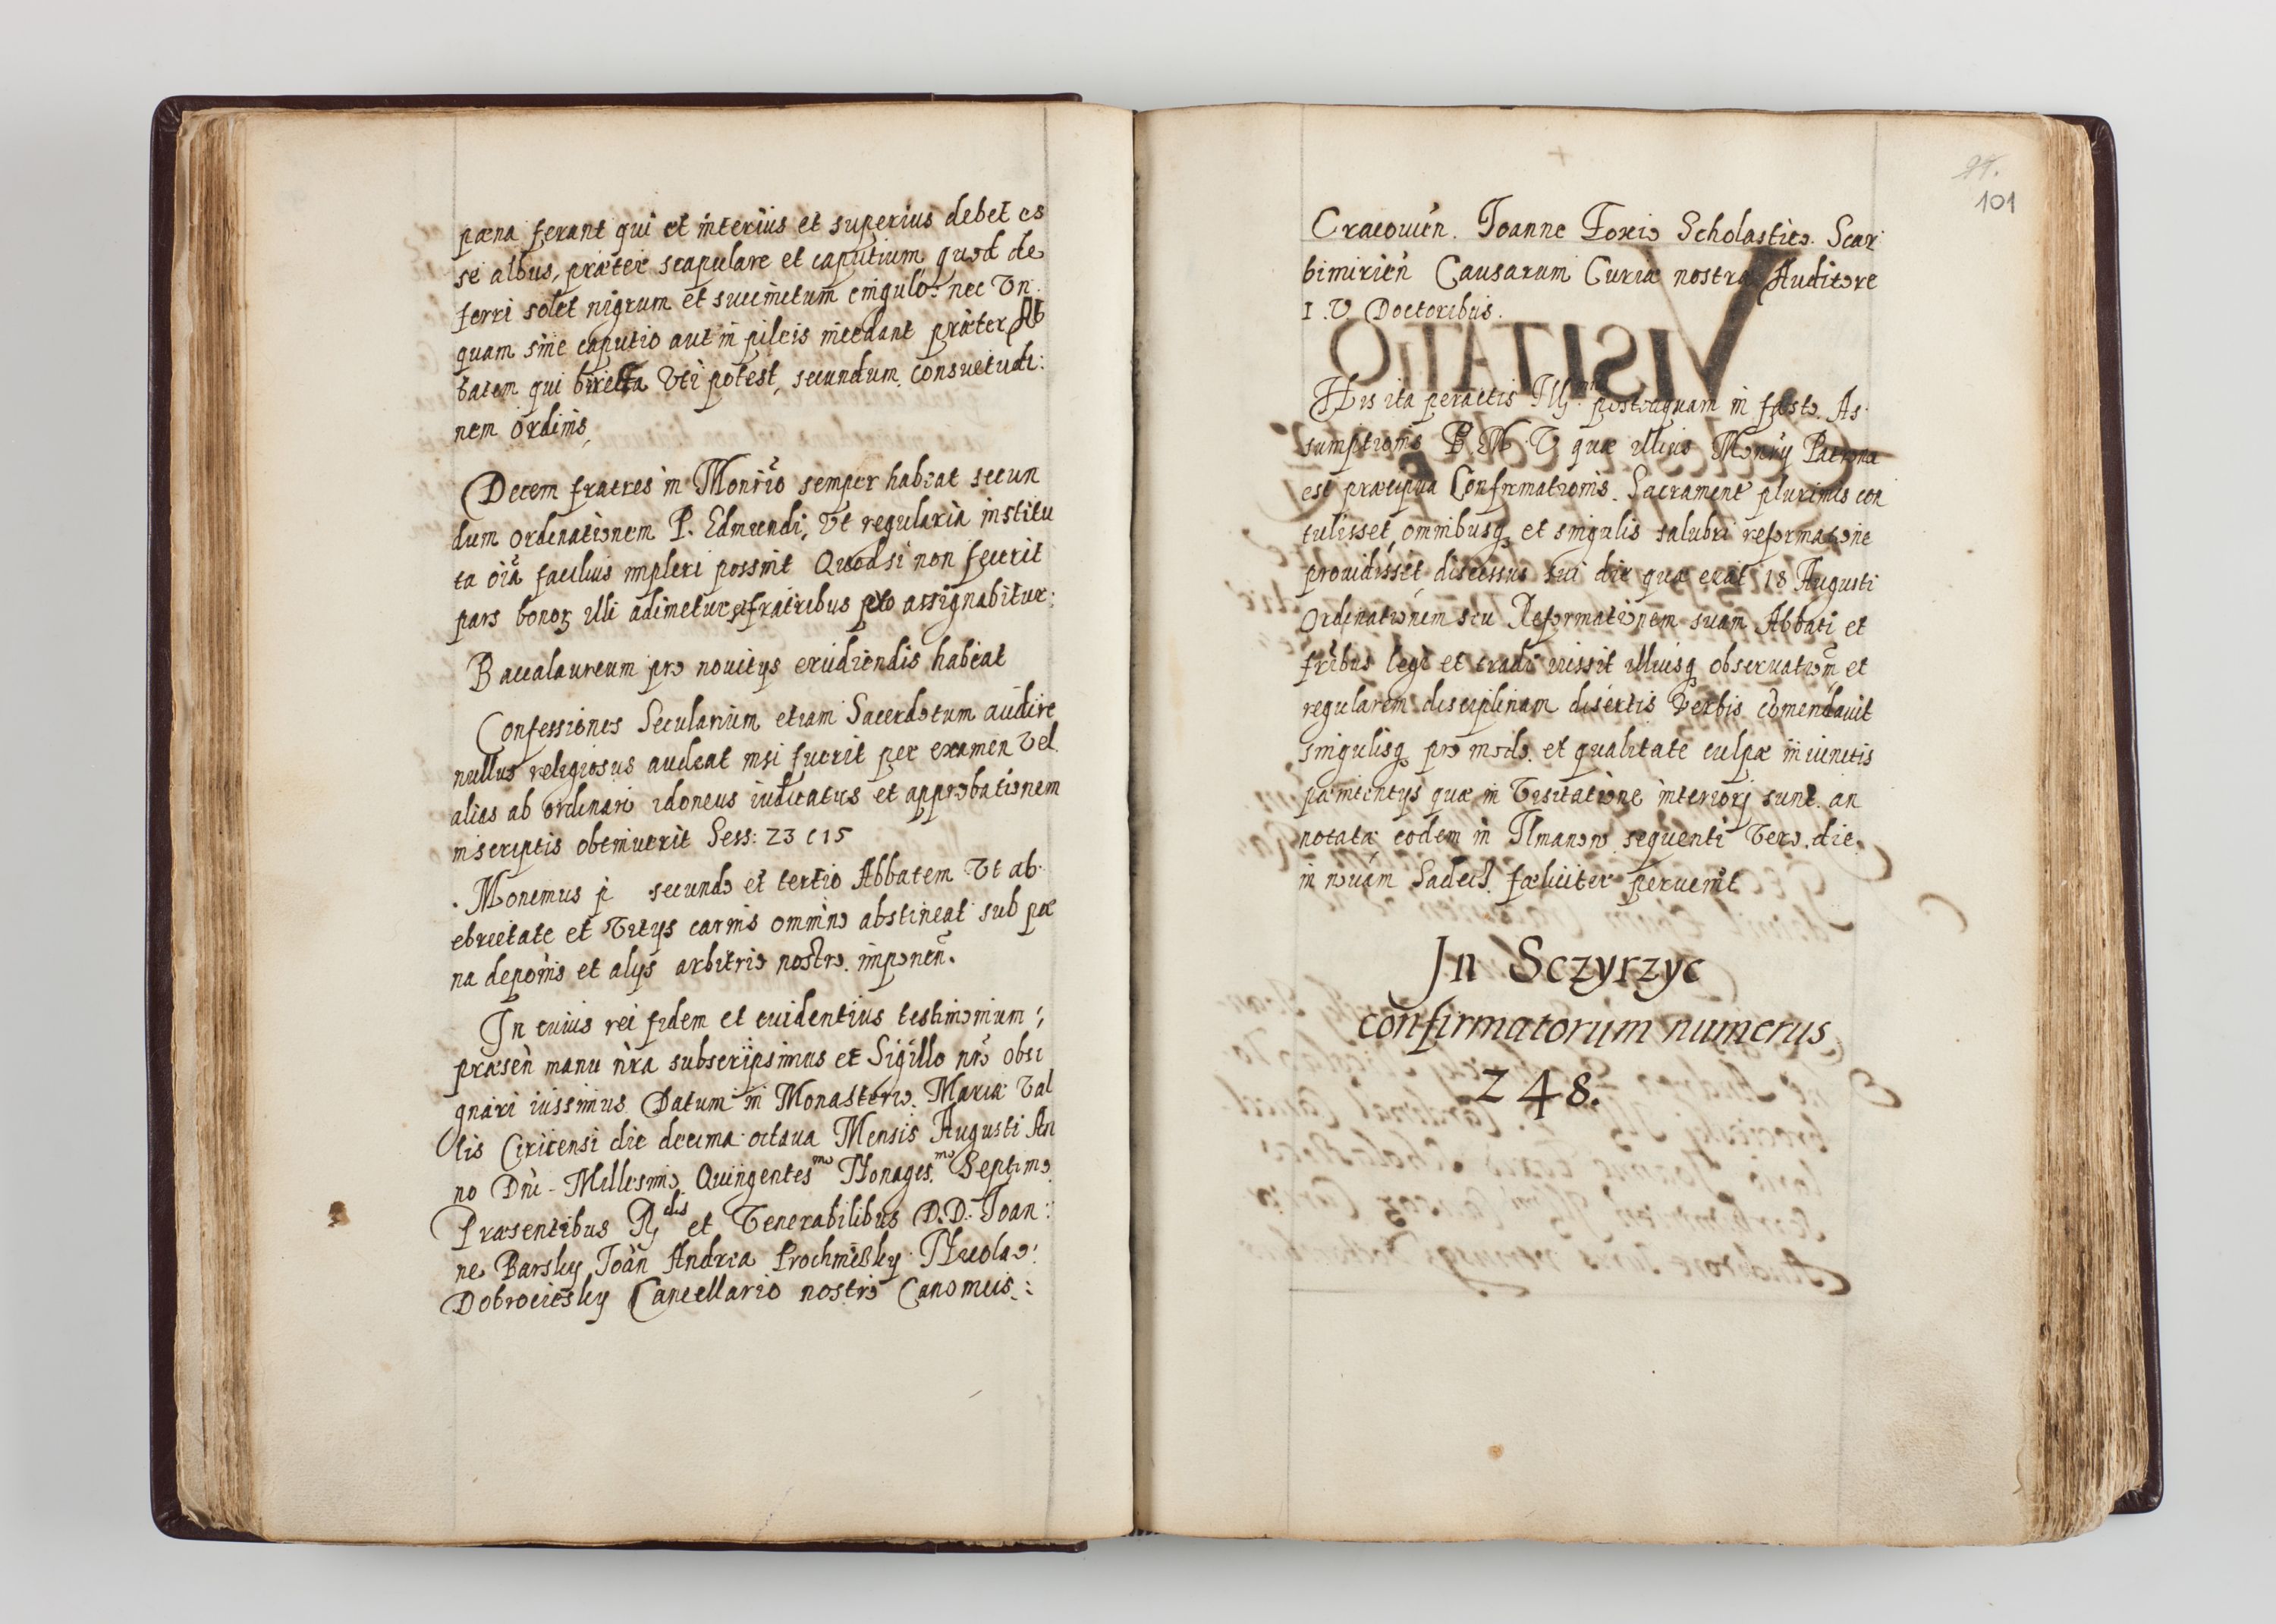 pœna ferant qui et interius et superius debet es
se albus, præter scapulare et caputium quod de
ferri solet nigrum et succinctum cingulo: nec Vn
quam sine caputio aut in pileis incedant præter Ab
batem qui biretta Vti potest, secundum consuetudi:
nem Ordinis,
Decem fratres in Monrio semper habeat secun
dum ordinationem P. Edmundi, Vt regularia institu
ta oia facilius impleri possint Quod si non fecerit
pars bonor illi adimetur et fratribus pro assignabitur:
Baccalaureum pro nouitys erudiendis habeat
Confessiones Secularium etiam Sacerdotum audire
nullus religiosus audeat nisi fuerit per examen Vel
alias ab ordinario idoneus iudicatus et approbationem
in scriptis obtinuerit Sess: 23 c 15
Monemus p secundo et tertio Abbatem Vt ab
ebrietate et Vitys carnis omnino abstineat sub pœ
na depōnis et alys arbitrio nostro imponen̄.
In cuius rei fidem et euidentius testimonium:,
præsen̄ manu n̄ra subscripsimus et Sigillo nr̄o obsi
gnari iussimus. Datum in Monasterio Mariæ Val
lis Ciricensi die decima octaua Mensis Augusti An
no Dn̄i Millesimo Quingentesmo Nonages.mo Septimo
Præsentibus Rdis et Venerabilibus D.D. Joan:
ne Barsky, Joan̄ Andrea Prochnißky Nicolao:
Dobrociesky Cancellario nostro Canonicis:
94.
101
Cracouien. Joanne Foxio Scholastico. Scar
bimirien̄ Causarum Curiæ nostræ Auditore
I. V Doctoribus.
His ita peractis Illmus postquam in festo As
sumptionis B. M. V quæ illius Monrÿ Patrona
est præcipua Confirmationis Sacramenta plurimis con
tulisset, omnibusq et singulis salubri reformatione
prouidisset discessus sui die quæ erat 18 Augusti
Ordinationem seu Reformationem suam Abbati et
fribus legi et tradi iussit illiusq obseruatiom̄ et
regularem disciplinam disertis Verbis com̄endauit
singulisq pro modo et qualitate culpæ in iunctis
pœnitentys quæ in Visitatione interiorj sunt an
notata eodem in Ilmanow sequenti Vero die
in nouam Sadecz fœliciter peruenit
In Sczyrzyc
confirmatorum numerus
248.